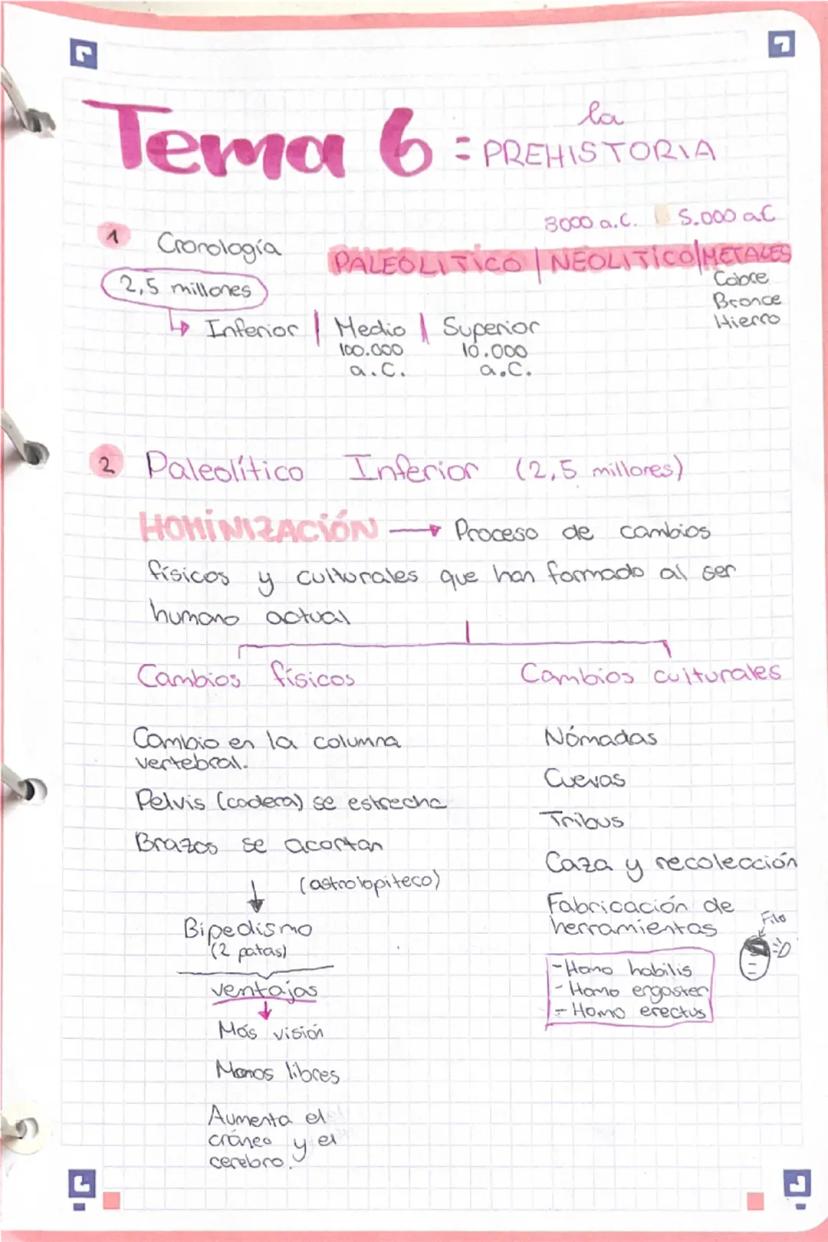 Tema 6 = la PREHISTORIA
1 Cronología
3000 a.C. 5.000 a.C
PALEOLITICO | NEOLITICO | METALES
2,5 millones
Cobre
Bronce
Hierro
Inferior | Medio | Superior
100.000 10.000
a.C. a.C.
2 Paleolítico Inferior (2,5 millores)
HOMINIZACIÓN → Proceso de cambios
físicos y culturales que han formado al ser
humano actual
Cambios físicos
Cambio en la columna
vertebral.
Pelvis (cadera) se estrecha
Brazos se acortan
(astrolopiteco)
Bipedismo
(2 patas)
ventajas
Más visión
Manos libres
Aumenta el
cráneo y el
cerebro.
Cambios culturales
Nómadas
Cuevas
Tribus
Caza y recolección
Fabricación de
herramientas
Filo
- Homo habilis
- Homo ergaster
- Homo erectus